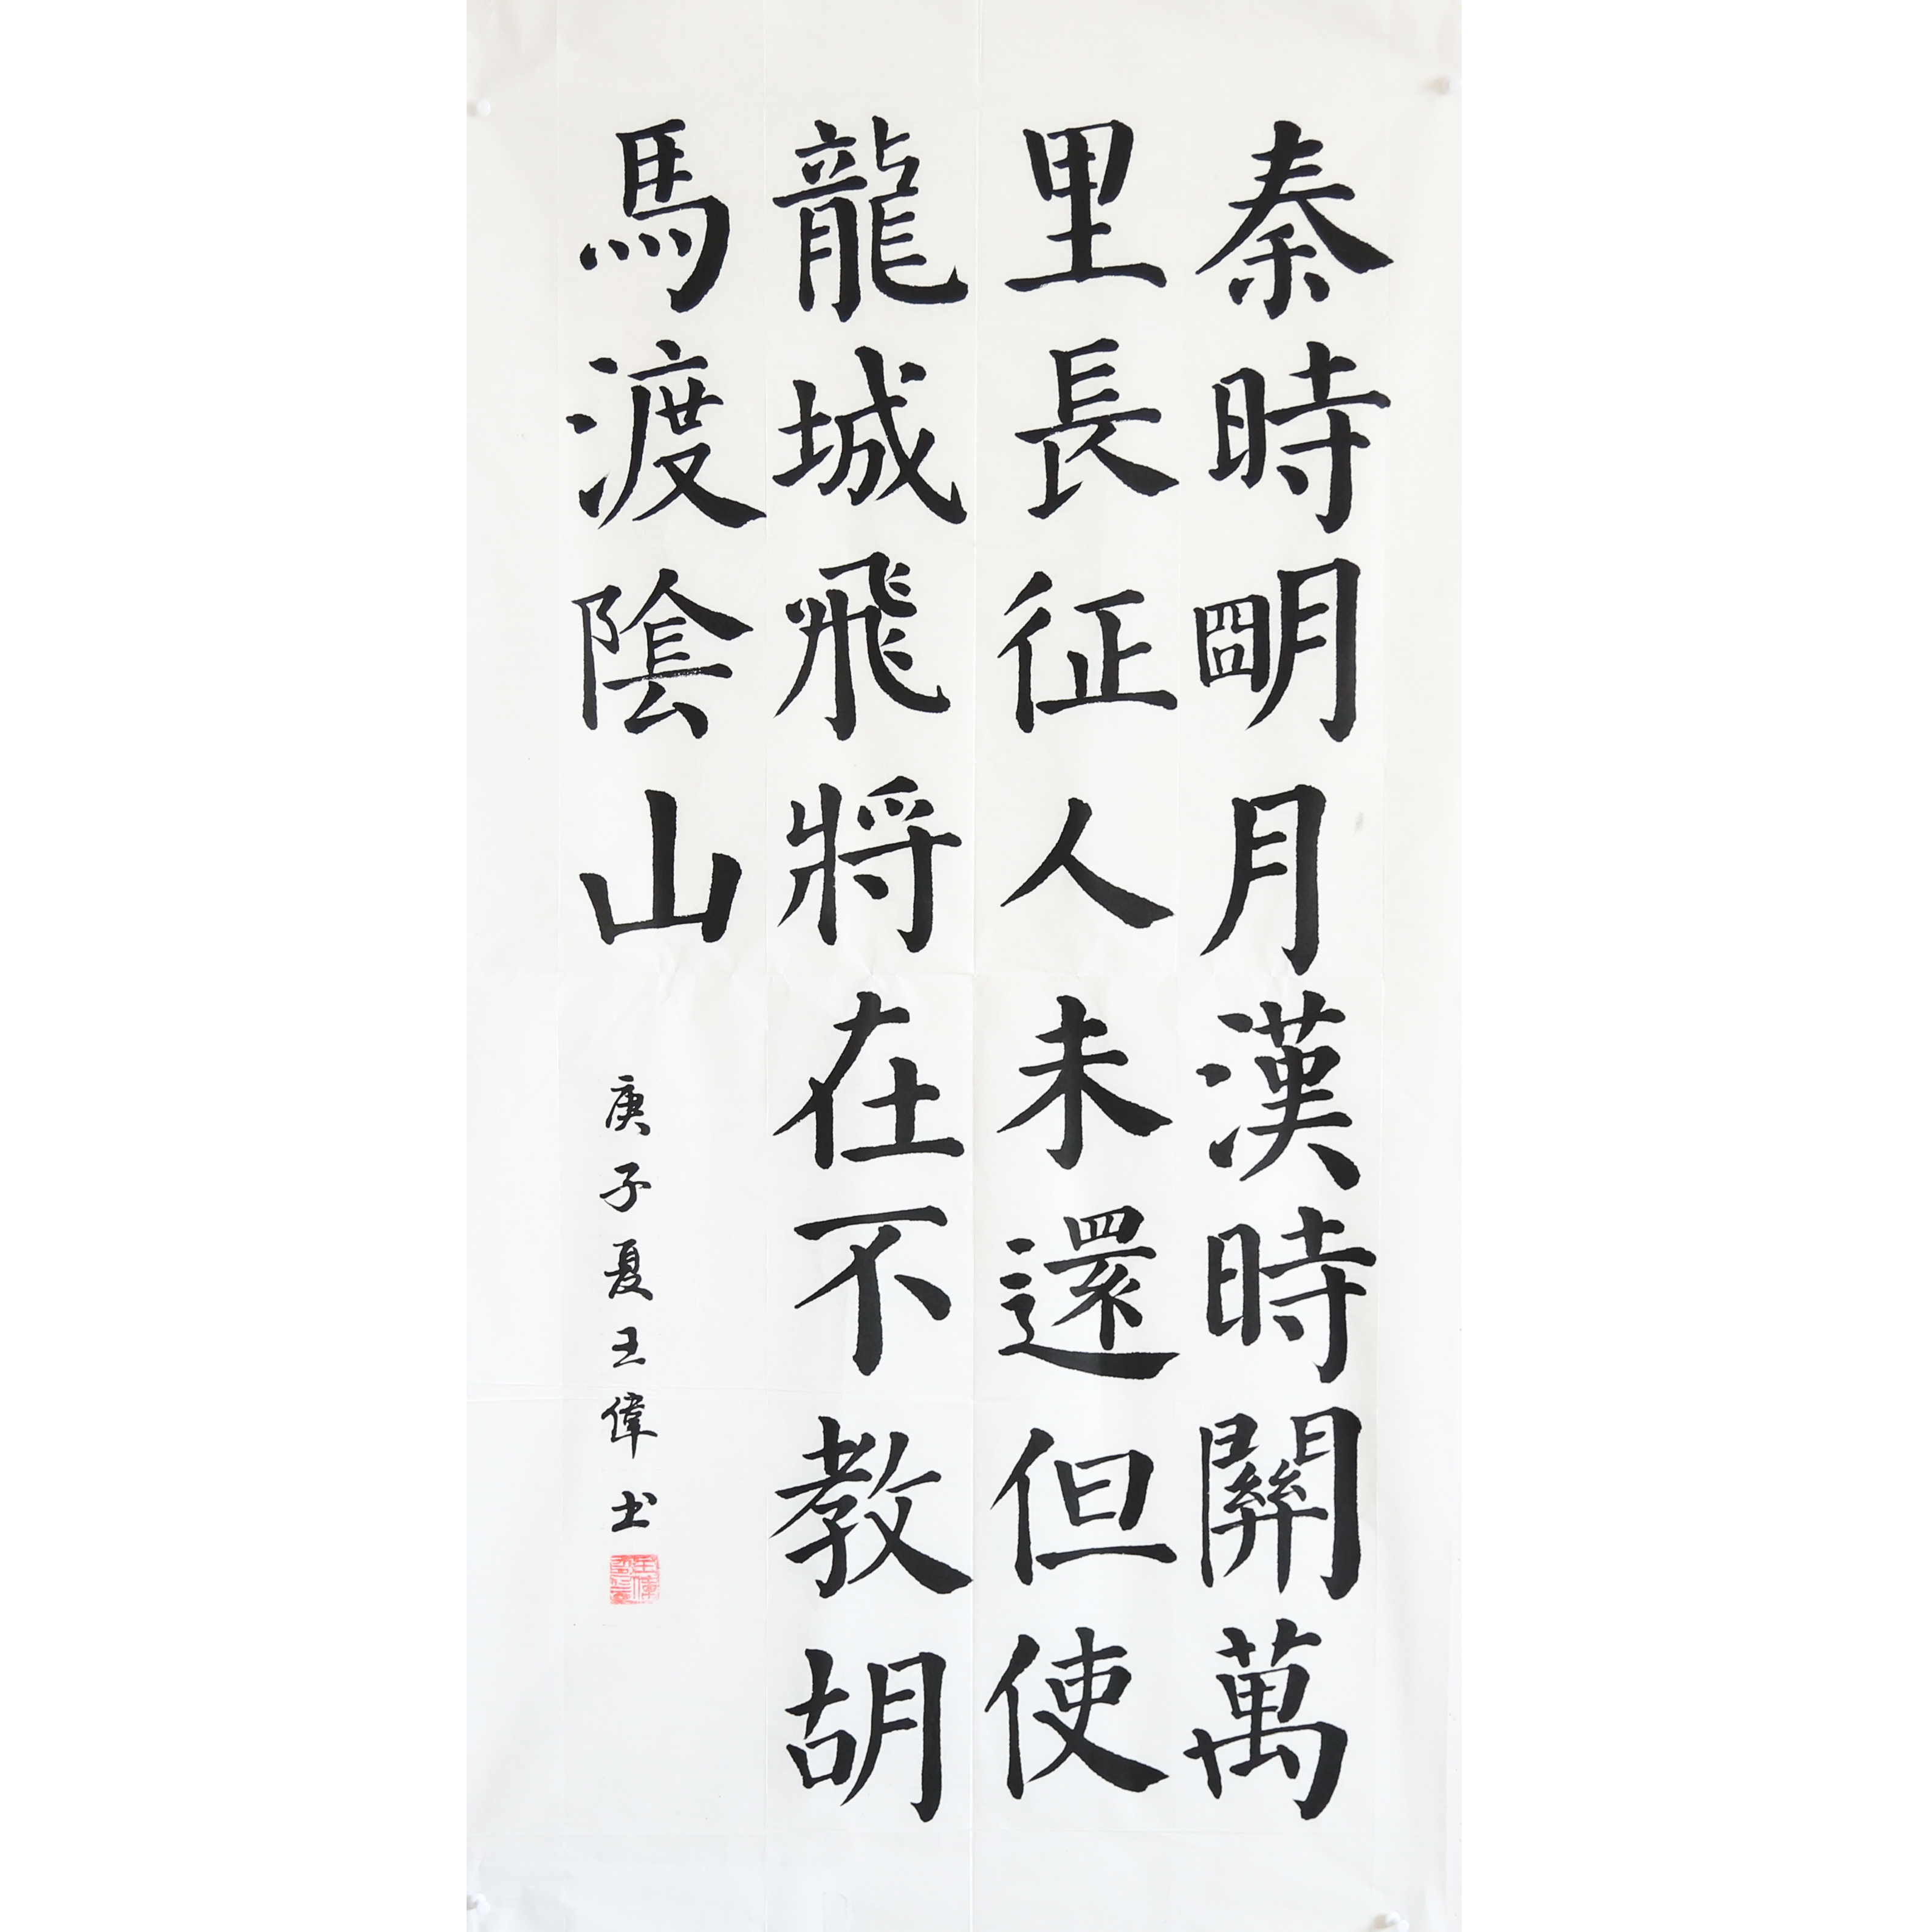 秦時明月漢時關萬
里長征人未還但使
龍城飛將在不教胡
馬渡陰山
庚子夏王偉书